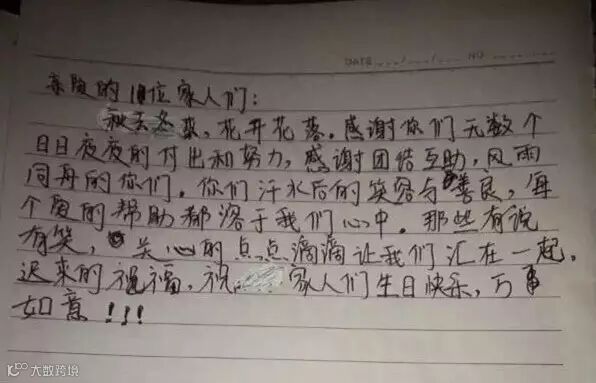 DATE ___/___/___ NO
亲爱的10位家人们:
秋去冬来,花开花落。感谢你们无数个
日日夜夜的付出和努力,感谢团结互助,风雨
同舟的你们。你们汗水后的笑容与善良,每
个图的帮助都溶于我们心中。那些有说
有笑,关心的点点滴滴让我们汇在一起。
迟来的祝福,祝 家人们生日快乐,万事
如意!!!
大数跨境